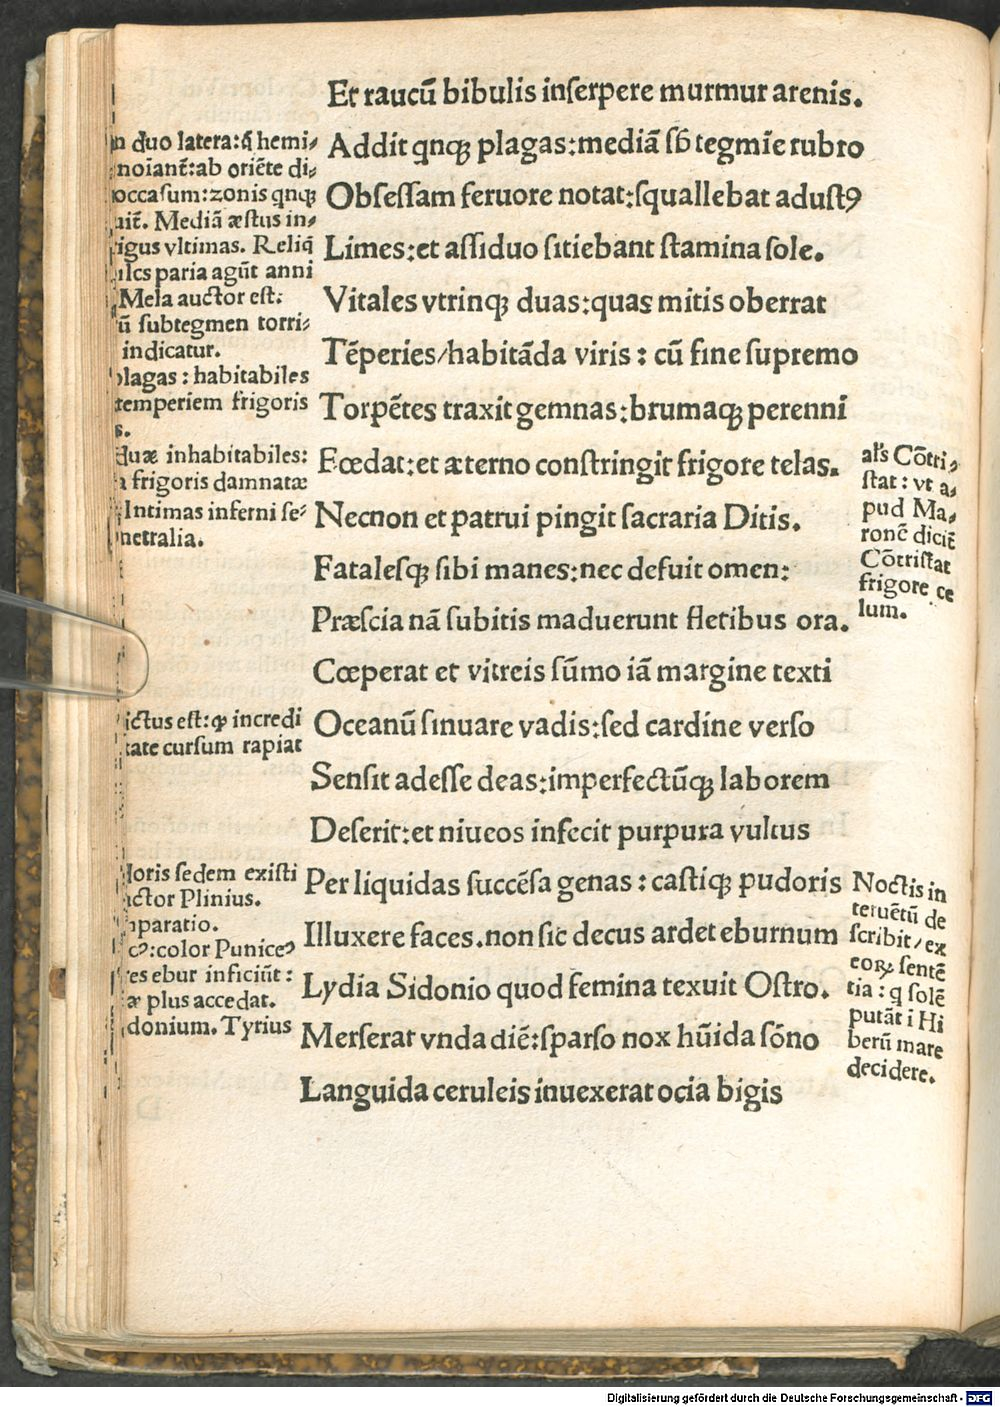 Et raucū bibulis inserpere murmur arenis.
Addit qnqꝫ plagas:mediā sb̄ tegmīe rubro
Obsessam feruore notat:squallebat adustꝰ
Limes:et assiduo sitiebant stamina sole.
Vitales vtrinqꝫ duas:quas mitis oberrat
Tēperies/habitāda viris : cū fine supremo
Torpētes traxit gemnas:brumaqꝫ perenni
Fœdat:et æterno constringit frigore telas.
Necnon et patrui pingit sacraria Ditis.
Fatalesqꝫ sibi manes:nec defuit omen:
Præscia nā subitis maduerunt fletibus ora.
Cœperat et vitreis sūmo iā margine texti
Oceanū sinuare vadis:sed cardine verso
Sensit adesse deas:imperfectūqꝫ laborem
Deserit:et niueos infecit purpura vultus
Per liquidas succēsa genas : castiqꝫ pudoris
Illuxere faces.non sic decus ardet eburnum
Lydia Sidonio quod femina texuit Ostro.
Merserat vnda diē:sparso nox hūida sōno
Languida ceruleis inuexerat ocia bigis
duo latera:q̄ hemi⸗
noiant̄:ab oriēte di⸗
occasum:zonis qnqꝫ
Mediā æstus in⸗
vltimas. Reliq̄
paria agūt anni
Mela auctor est:
subtegmen torri⸗
indicatur.
plagas : habitabiles
temperiem frigoris
duæ inhabitabiles:
frigoris damnatæ
Intimas inferni se⸗
netralia.
ictus est:ꝙ incredi
tate cursum rapiat
loris sedem existi
ctor Plinius.
paratio.
color Puniceꝰ
es ebur inficiūt :
æ plus accedat.
donium. Tyrius
al's Cōtri⸗
stat : vt a⸗
pud Ma⸗
ronē dicit̄
Cōtristat
frigore ce
lum.
Noctis in
teruētū de
scribit/ex
eoꝝ sentē
tia : q solē
putāt i Hi
berū mare
decidere.
Digitalisierung gefördert durch die Deutsche Forschungsgemeinschaft - DFG